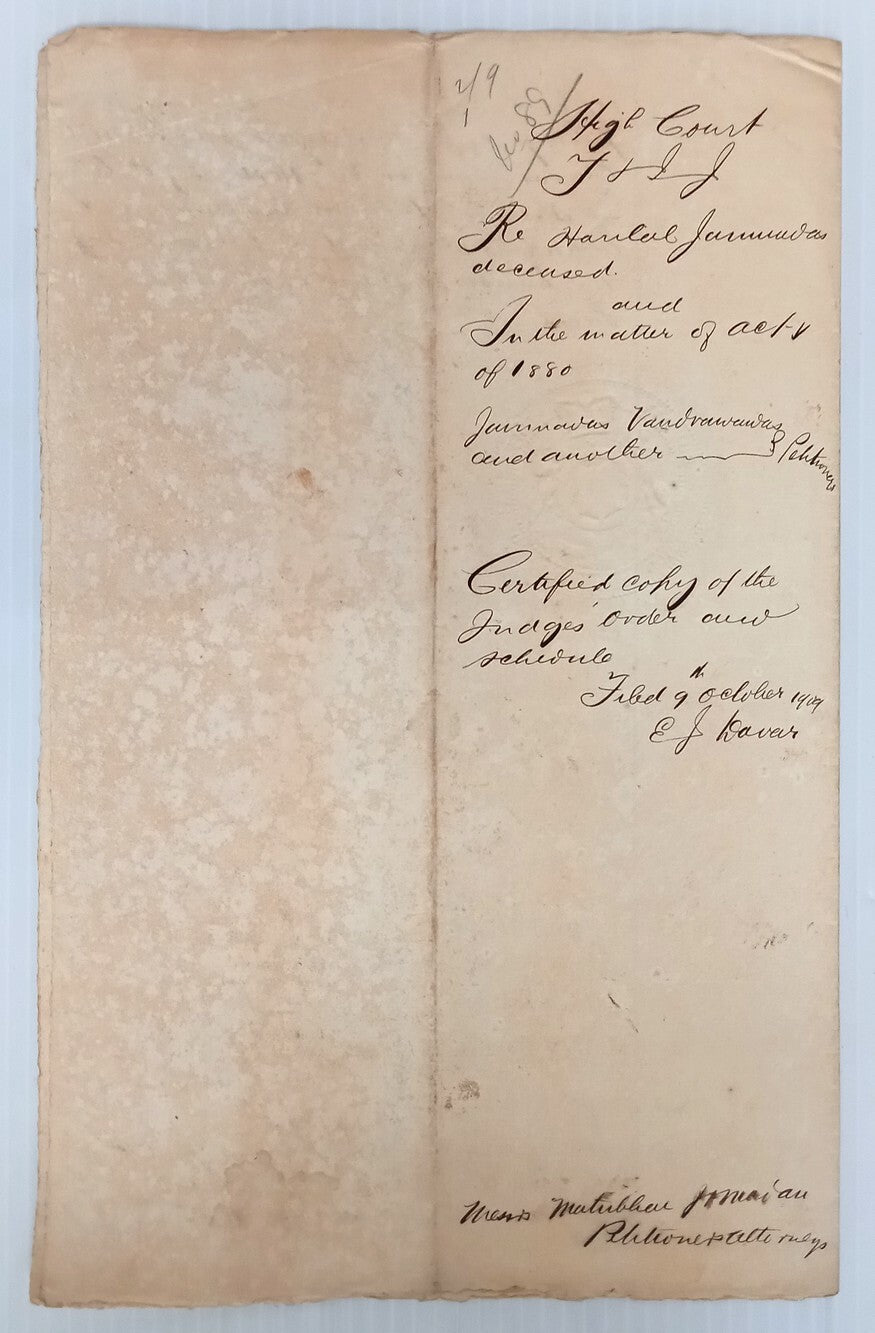 2/9
1
No 89
High Court
T & I J
Re Harilal Jamnadas
deceased.
and
In the matter of act V
of 1880
Jamnadas Vandrawandas
and another } Petitioners
Certified copy of the
Judges' order and
schedule
Filed 9th October 1909
E J Davar
Messrs Matubhai
Petitioners attorneys